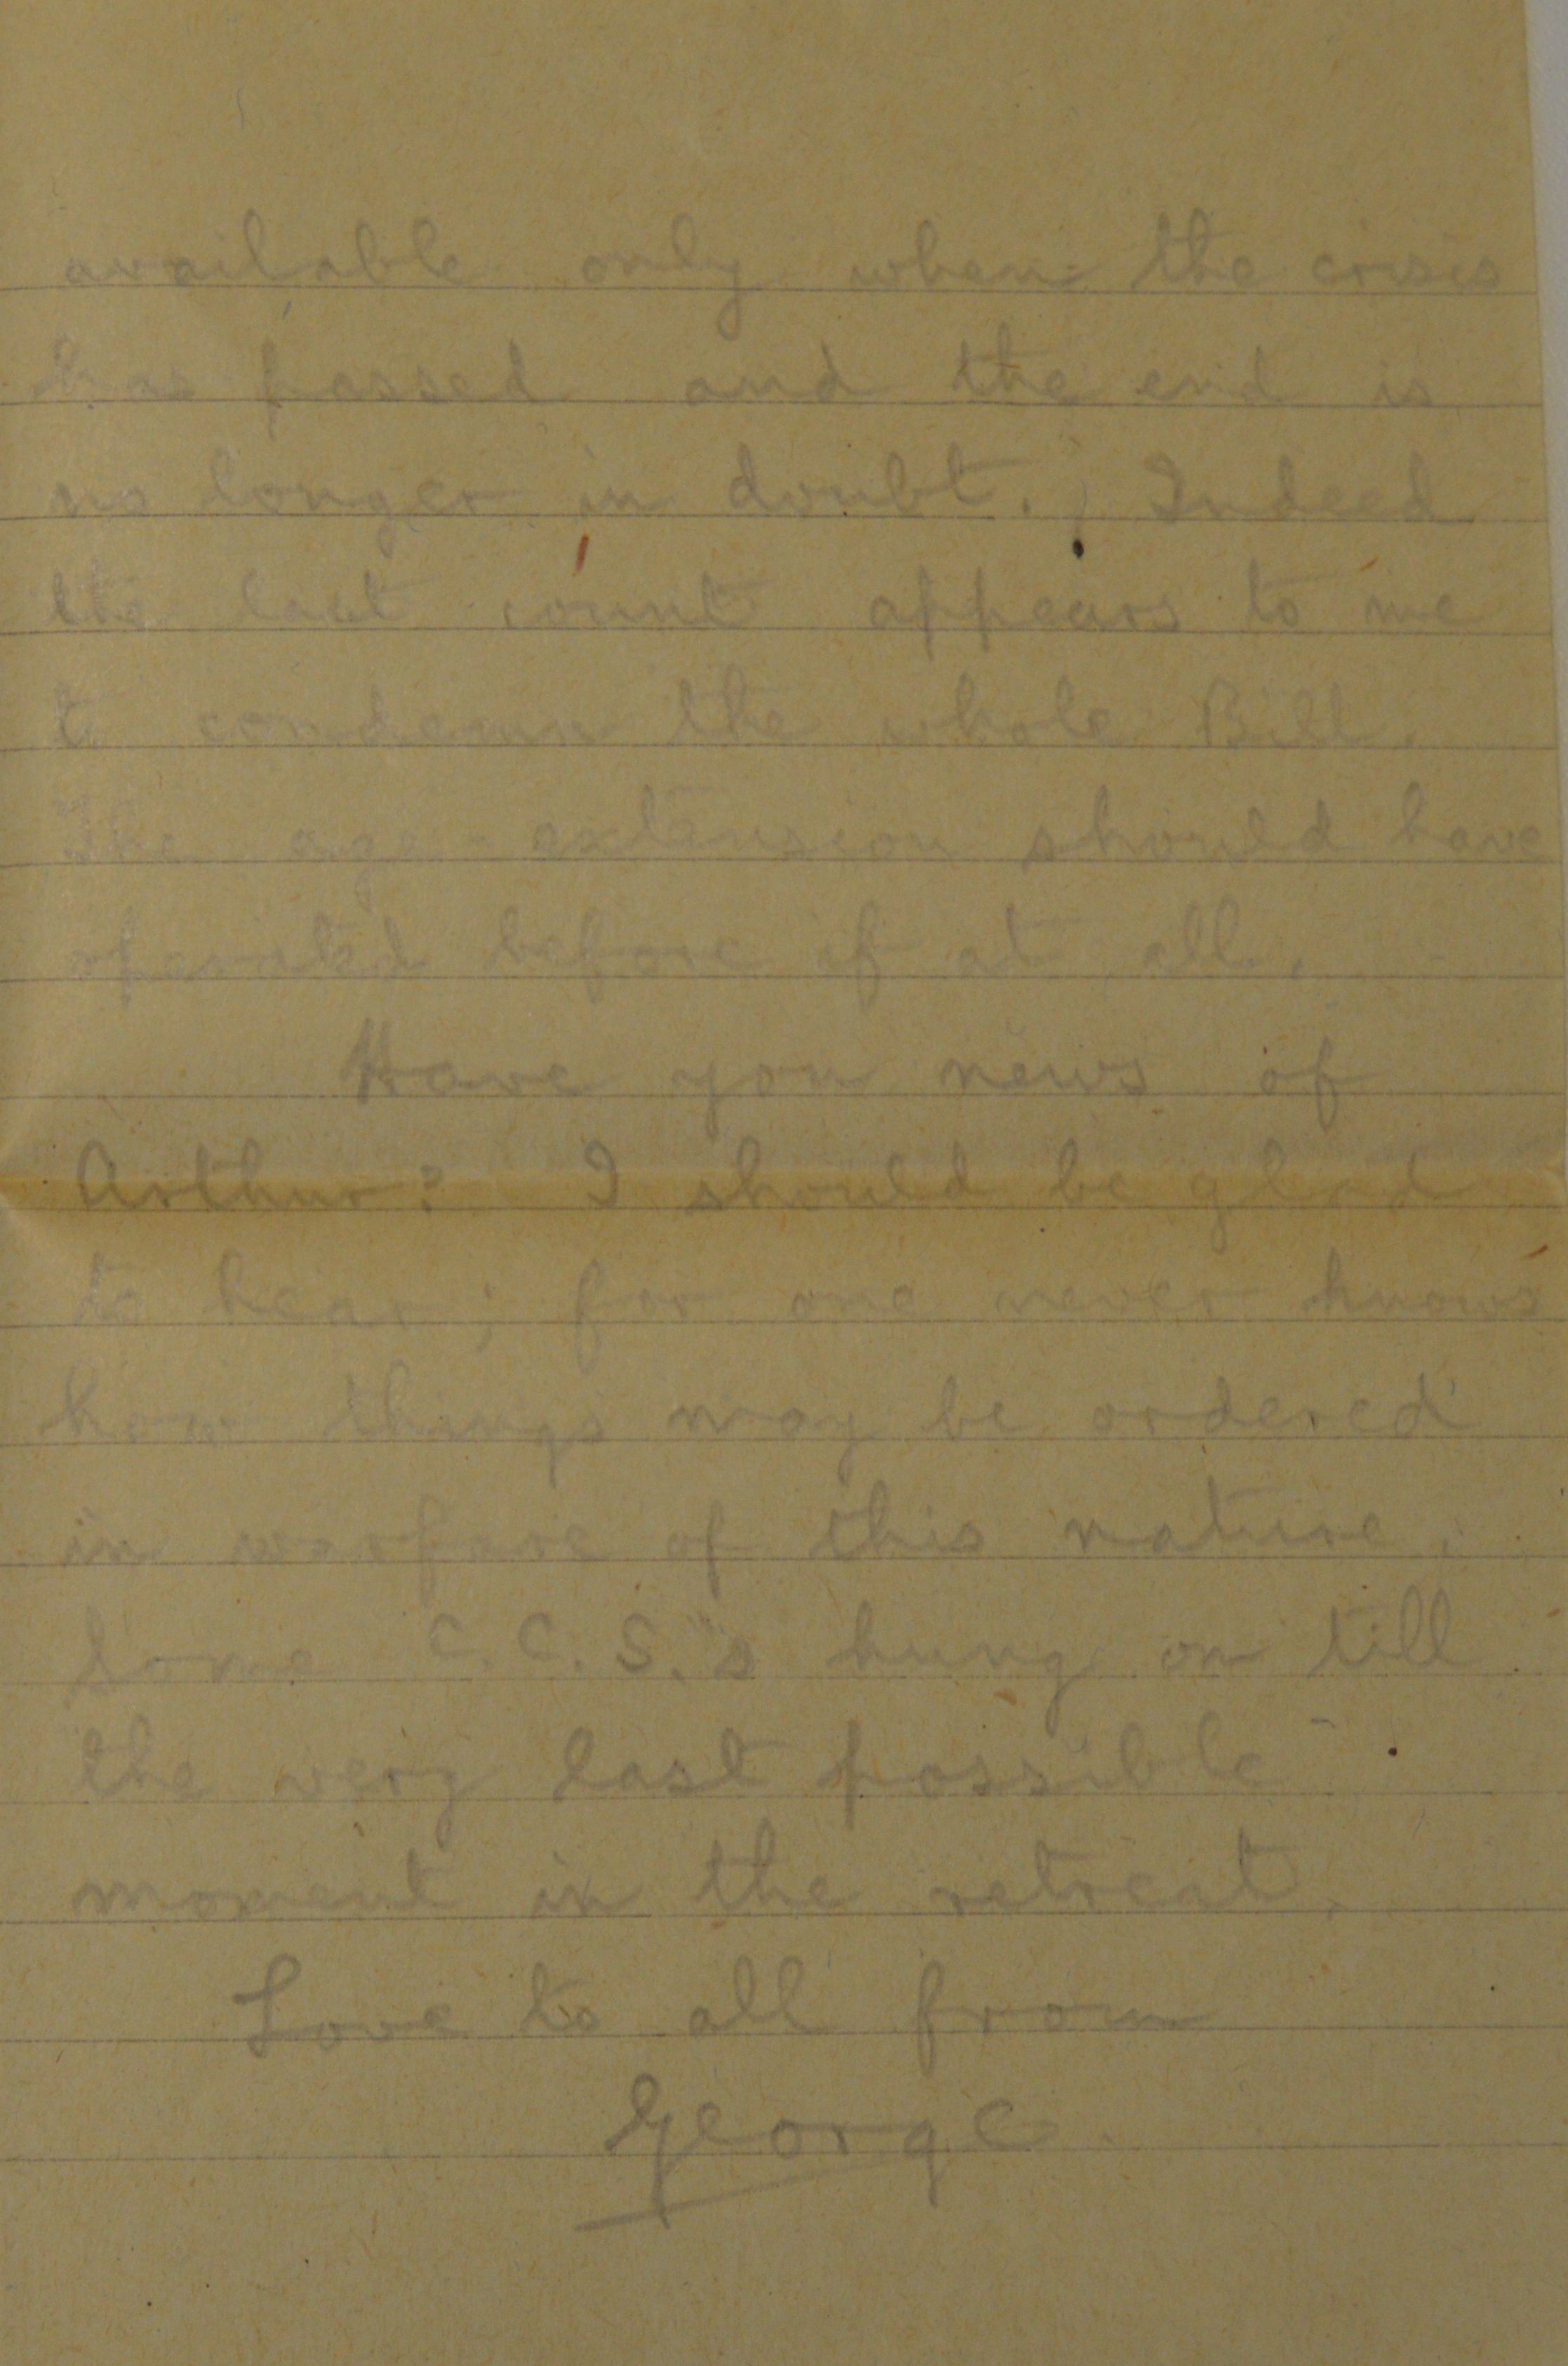 available only when the crisis
has passed and the end is
no longer in doubt. Indeed
the last count appears to me
to condemn the whole Bill.
The age-extension should have
operated before if at all.
Have you news of
Arthur? I should be glad
to hear; for one never knows
how things may be ordered
in warfare of this nature.
Some C.C.S.'s hung on till
the very last possible
moment in the retreat.
Love to all from
George